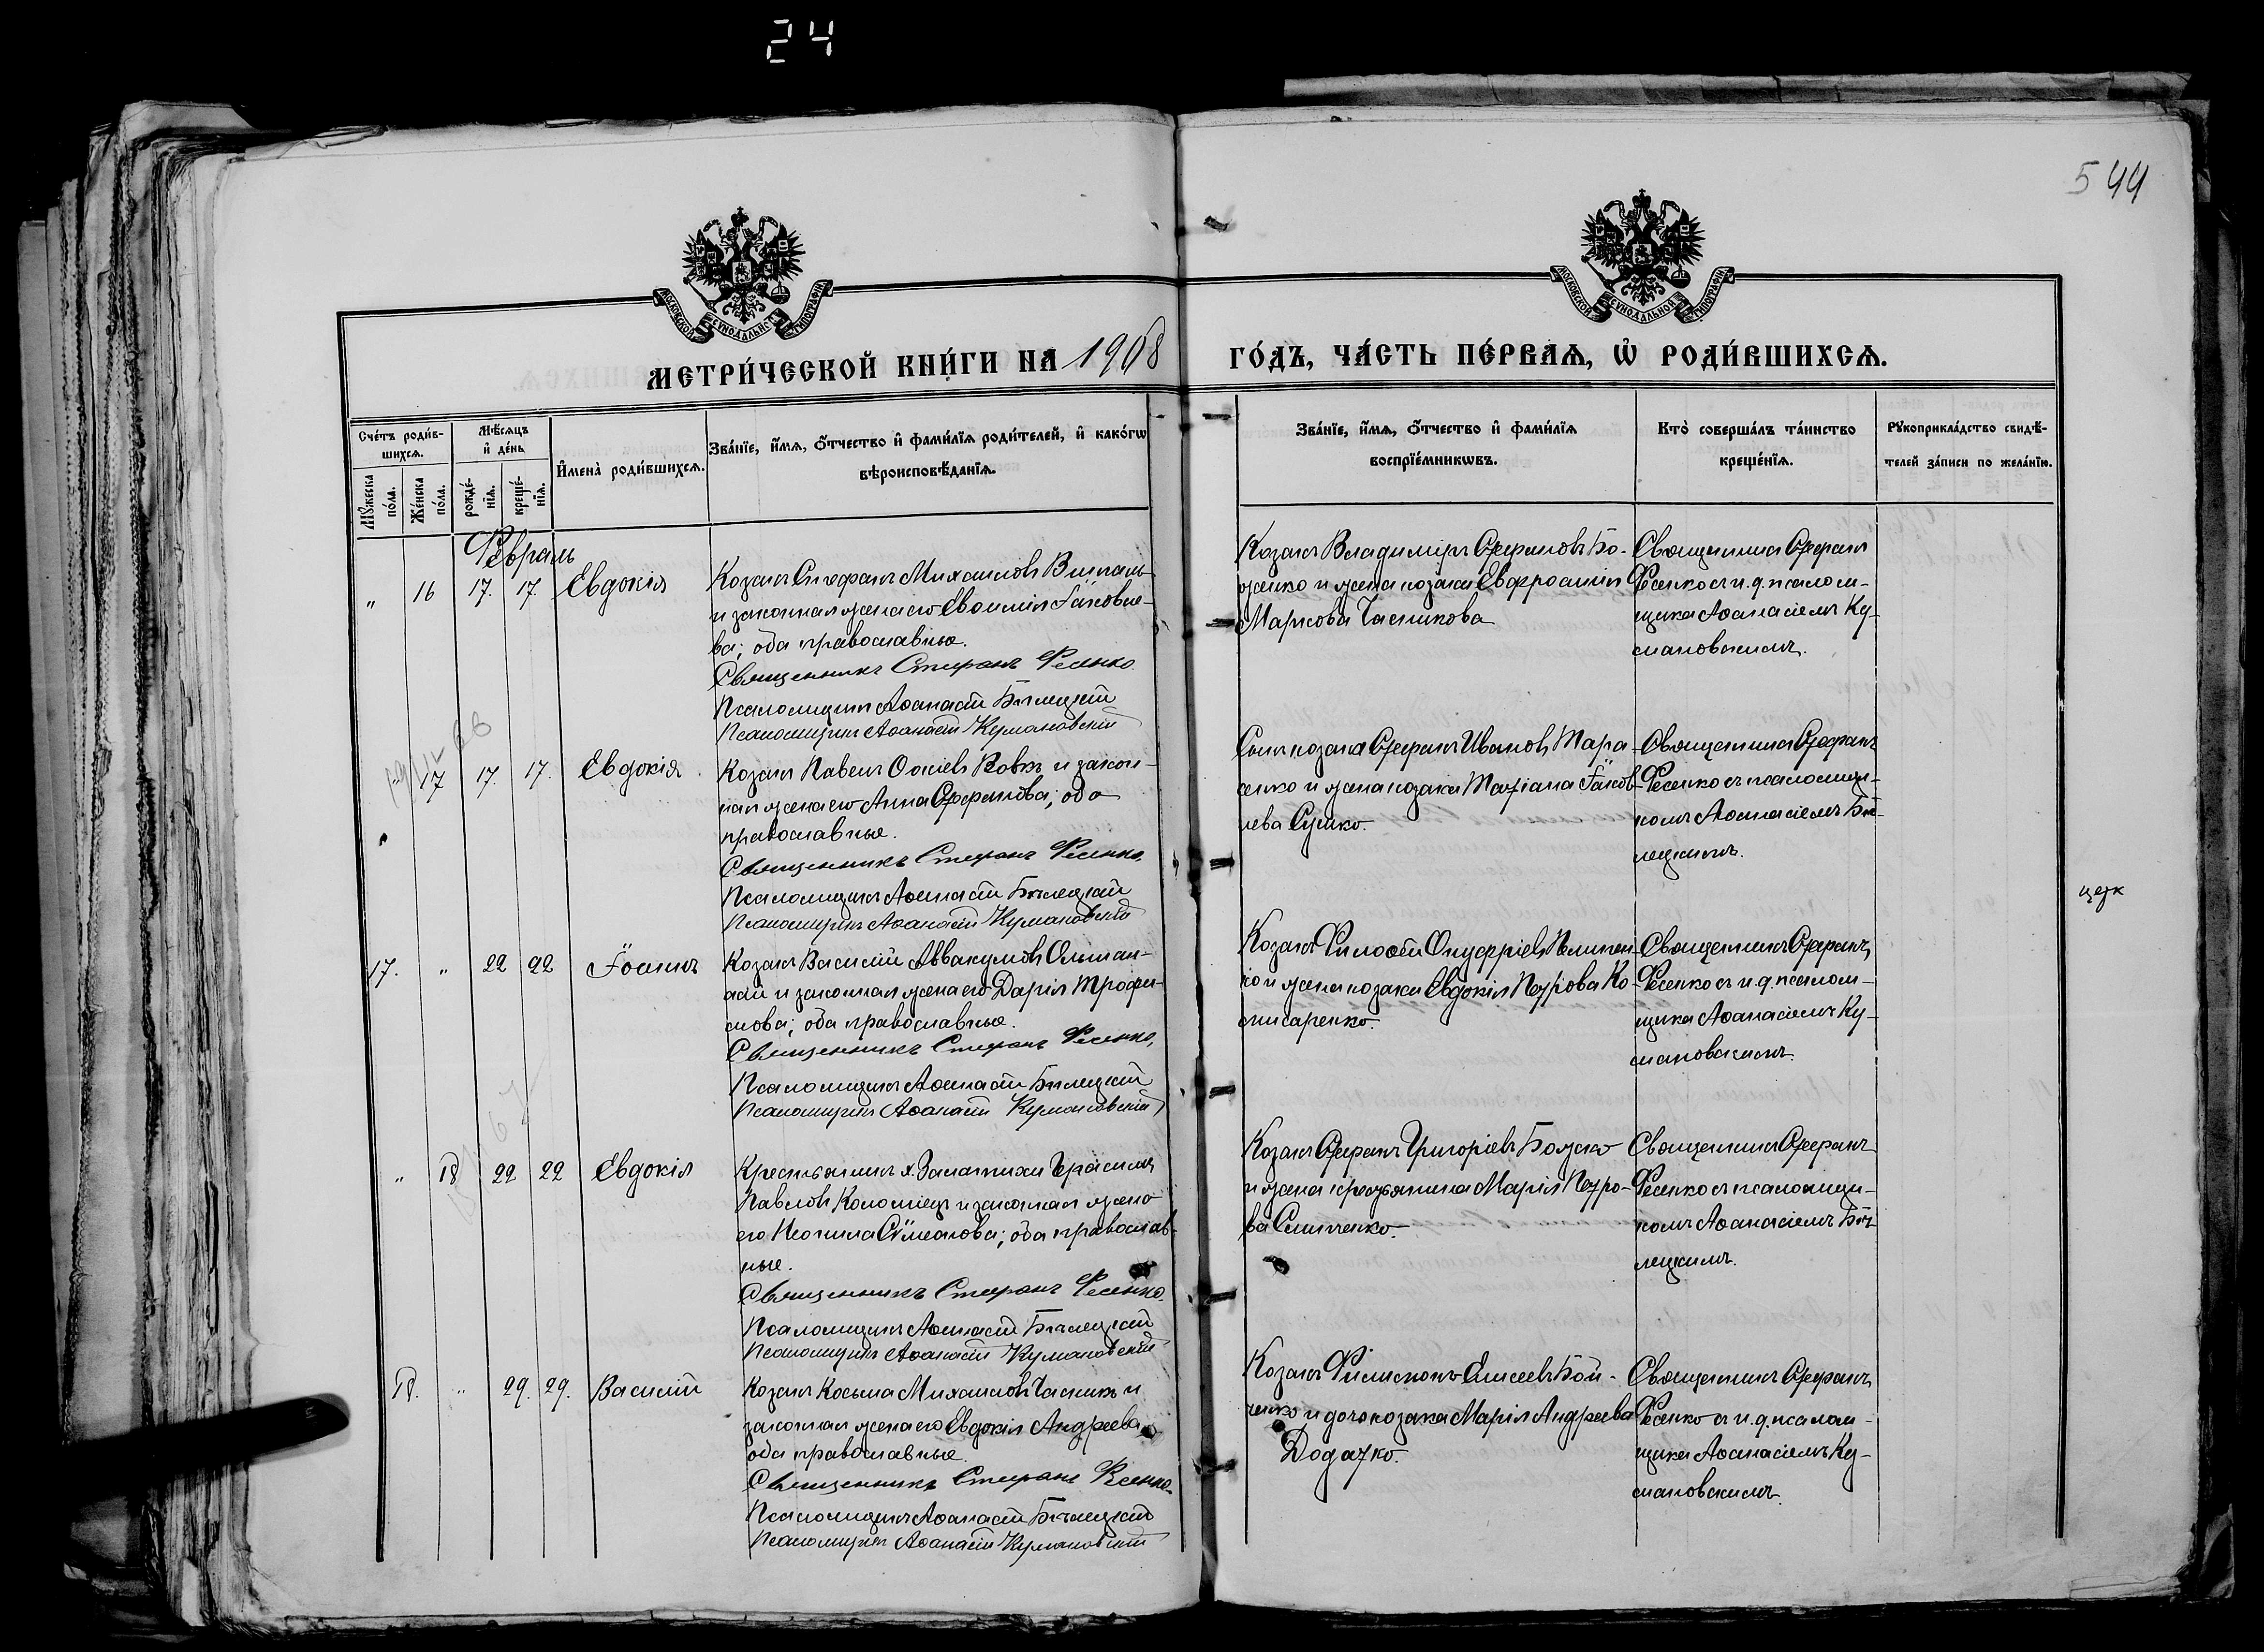 24
544
МОСКОВСКОЙ СѴНОДАЛЬНОЙ ТИПОГРАФІИ
МОСКОВСКОЙ СѴНОДАЛЬНОЙ ТИПОГРАФІИ
МЕТРИ́ЧЕСКОЙ КНИ́ГИ НА 1908
ГО́ДЪ, ЧА́СТЬ ПЕ́РВАѦ, Ѡ҆ РОДИ́ВШИХСѦ.
Сче́тъ роди́в-
шихсѧ.
Мꙋ́жеска по́ла.
Же́нска по́ла.
Мѣ́сѧцъ и҆ де́нь
рожде́-
нїѧ.
креще́-
нїѧ.
И҆мена̀ роди́вшихсѧ.
Зва́нїе, и҆́мѧ, ѻ҆́тчество и҆ фами́лїѧ роди́телей, и҆ како́гѡ
вѣроисповѣ́данїѧ.
Зва́нїе, и҆́мѧ, ѻ҆́тчество и҆ фами́лїѧ
воспрїе́мникѡвъ.
Кто̀ соверша́лъ та́инство
креще́нїѧ.
Рꙋкоприкла́дство свидѣ́-
телей за́писи по жела́нїю.
Февраль
„ 16 17. 17. Евдокія
Козакъ Стефанъ Михаиловъ
и законная жена его Іаковле-
ва; оба православные.
Священникъ Стефанъ Фесенко
Псаломщикъ Аѳанасій Бѣлецкій
Псаломщикъ Аѳанасій Кумановскій
Козакъ Владиміръ Стефановъ Бо-
женко и жена козака Евфросинія
Маркова Часникова
Священникъ Стефанъ
Фесенко съ и.д. псалом-
щика Аѳанасіемъ Ку-
мановскимъ.
17 17. 17. Евдокія
Козакъ Павелъ Вовкъ и закон-
ная жена его Анна Стефанова; оба
православные.
Священникъ Стефанъ Фесенко.
Псаломщикъ Аѳанасій Бѣлецкій
Псаломщикъ Аѳанасій Кумановскій
Сынъ козака Стефанъ Ивановъ Тара-
сенко и жена козака Татіана Іаков-
лева Сушко.
Священникъ Стефанъ
Фесенко съ псаломщи-
комъ Аѳанасіемъ Бѣ-
лецкимъ.
17. „ 22 22 Іоаннъ
Козакъ Василій Аввакумовъ Ольшан-
скій и законная жена его Дарія Трофи-
мова; оба православные.
Священникъ Стефанъ Фесенко.
Псаломщикъ Аѳанасій Бѣлецкій
Псаломщикъ Аѳанасій Кумановскій
Козакъ Филоѳей Онуфріевъ
и жена козака Евдокія Петрова Ко-
Священникъ Стефанъ
Фесенко съ и.д. псалом-
щика Аѳанасіемъ Ку-
мановскимъ.
„ 18 22 22 Евдокія
Крестьянинъ х. Герасимъ
Павловъ Коломіецъ и законная жена
его Неонила Сѵмеонова; оба православ-
ные.
Священникъ Стефанъ Фесенко.
Псаломщикъ Аѳанасій Бѣлецкій
Псаломщикъ Аѳанасій Кумановскій
Козакъ Стефанъ Григоріевъ Божко
и жена крестьянина Марія Петро-
ва
Священникъ Стефанъ
Фесенко съ псаломщи-
комъ Аѳанасіемъ Бѣ-
лецкимъ.
18. „ 29. 29. Василій
Козакъ Косьма Михаиловъ Часникъ и
законная жена его Евдокія Андреева
оба православные.
Священникъ Стефанъ Фесенко.
Псаломщикъ Аѳанасій Бѣлецкій
Псаломщикъ Аѳанасій Кумановскій
Козакъ Филимонъ Елисеевъ Бой-
ченко и дочь козака Марія Андреева
Додатко.
Священникъ Стефанъ
Фесенко съ и.д. псалом-
щика Аѳанасіемъ Ку-
мановскимъ.